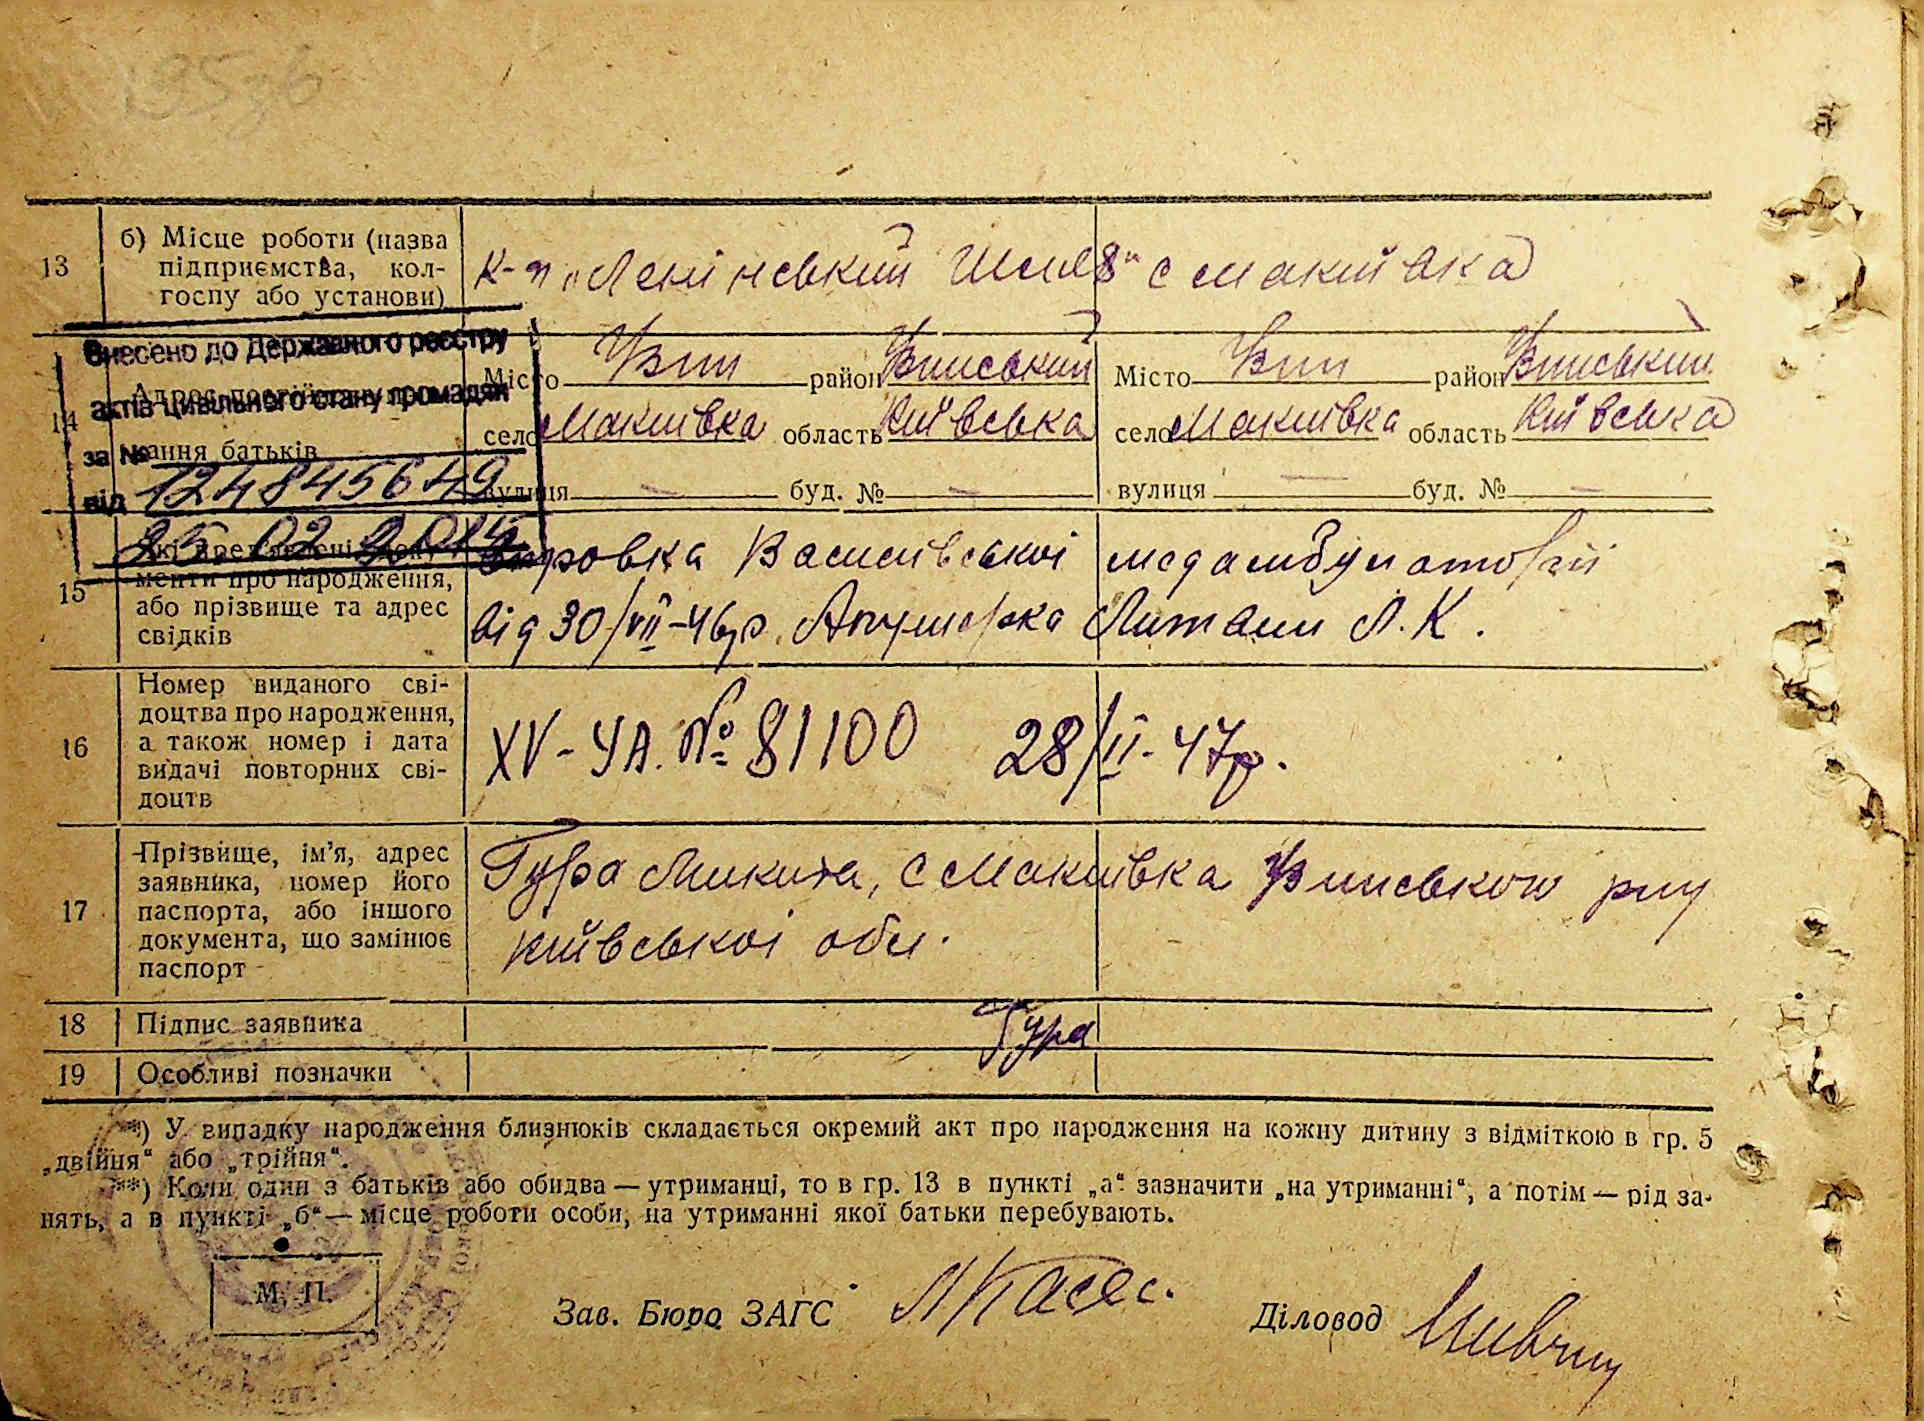 13 б) Місце роботи (назва
підприємства, кол-
госпу або установи)
к-п „Ленінський Шлях“ с Макіївка
Внесено до Державного реєстру
актів цивільного стану громадян
за №
від 1248456749
25 02 2015
14
кання батьків
Місто Узин район Узинський
село Макиївка область Київська
вулиця — буд. № —
Місто Узин район Узинський
село Макиївка область Київська
вулиця — буд. № —
15
менти про народження,
або прізвище та адрес
свідків
Василівської медамбулаторії
від 30/VII-46р. Акушерка Литвин Л. К.
16 Номер виданого сві-
доцтва про народження,
а також номер і дата
видачі повторних сві-
доцтв
XV-УА. № 81100 28/II-47р.
17 Прізвище, ім’я, адрес
заявника, номер його
паспорта, або іншого
документа, що замінює
паспорт
Гура Микита, с Макиївка Узинського р-ну
Київської обл.
18 Підпис заявника Гура
19 Особливі позначки
*) У випадку народження близнюків складається окремий акт про народження на кожну дитину з відміткою в гр. 5
„двійня“ або „трійня“.
**) Коли один з батьків або обидва — утриманці, то в гр. 13 в пункті „а“ зазначити „на утриманні“, а потім — рід за-
нять, а в пункті „б“ — місце роботи особи, на утриманні якої батьки перебувають.
М. П.
Зав. Бюро ЗАГС Діловод